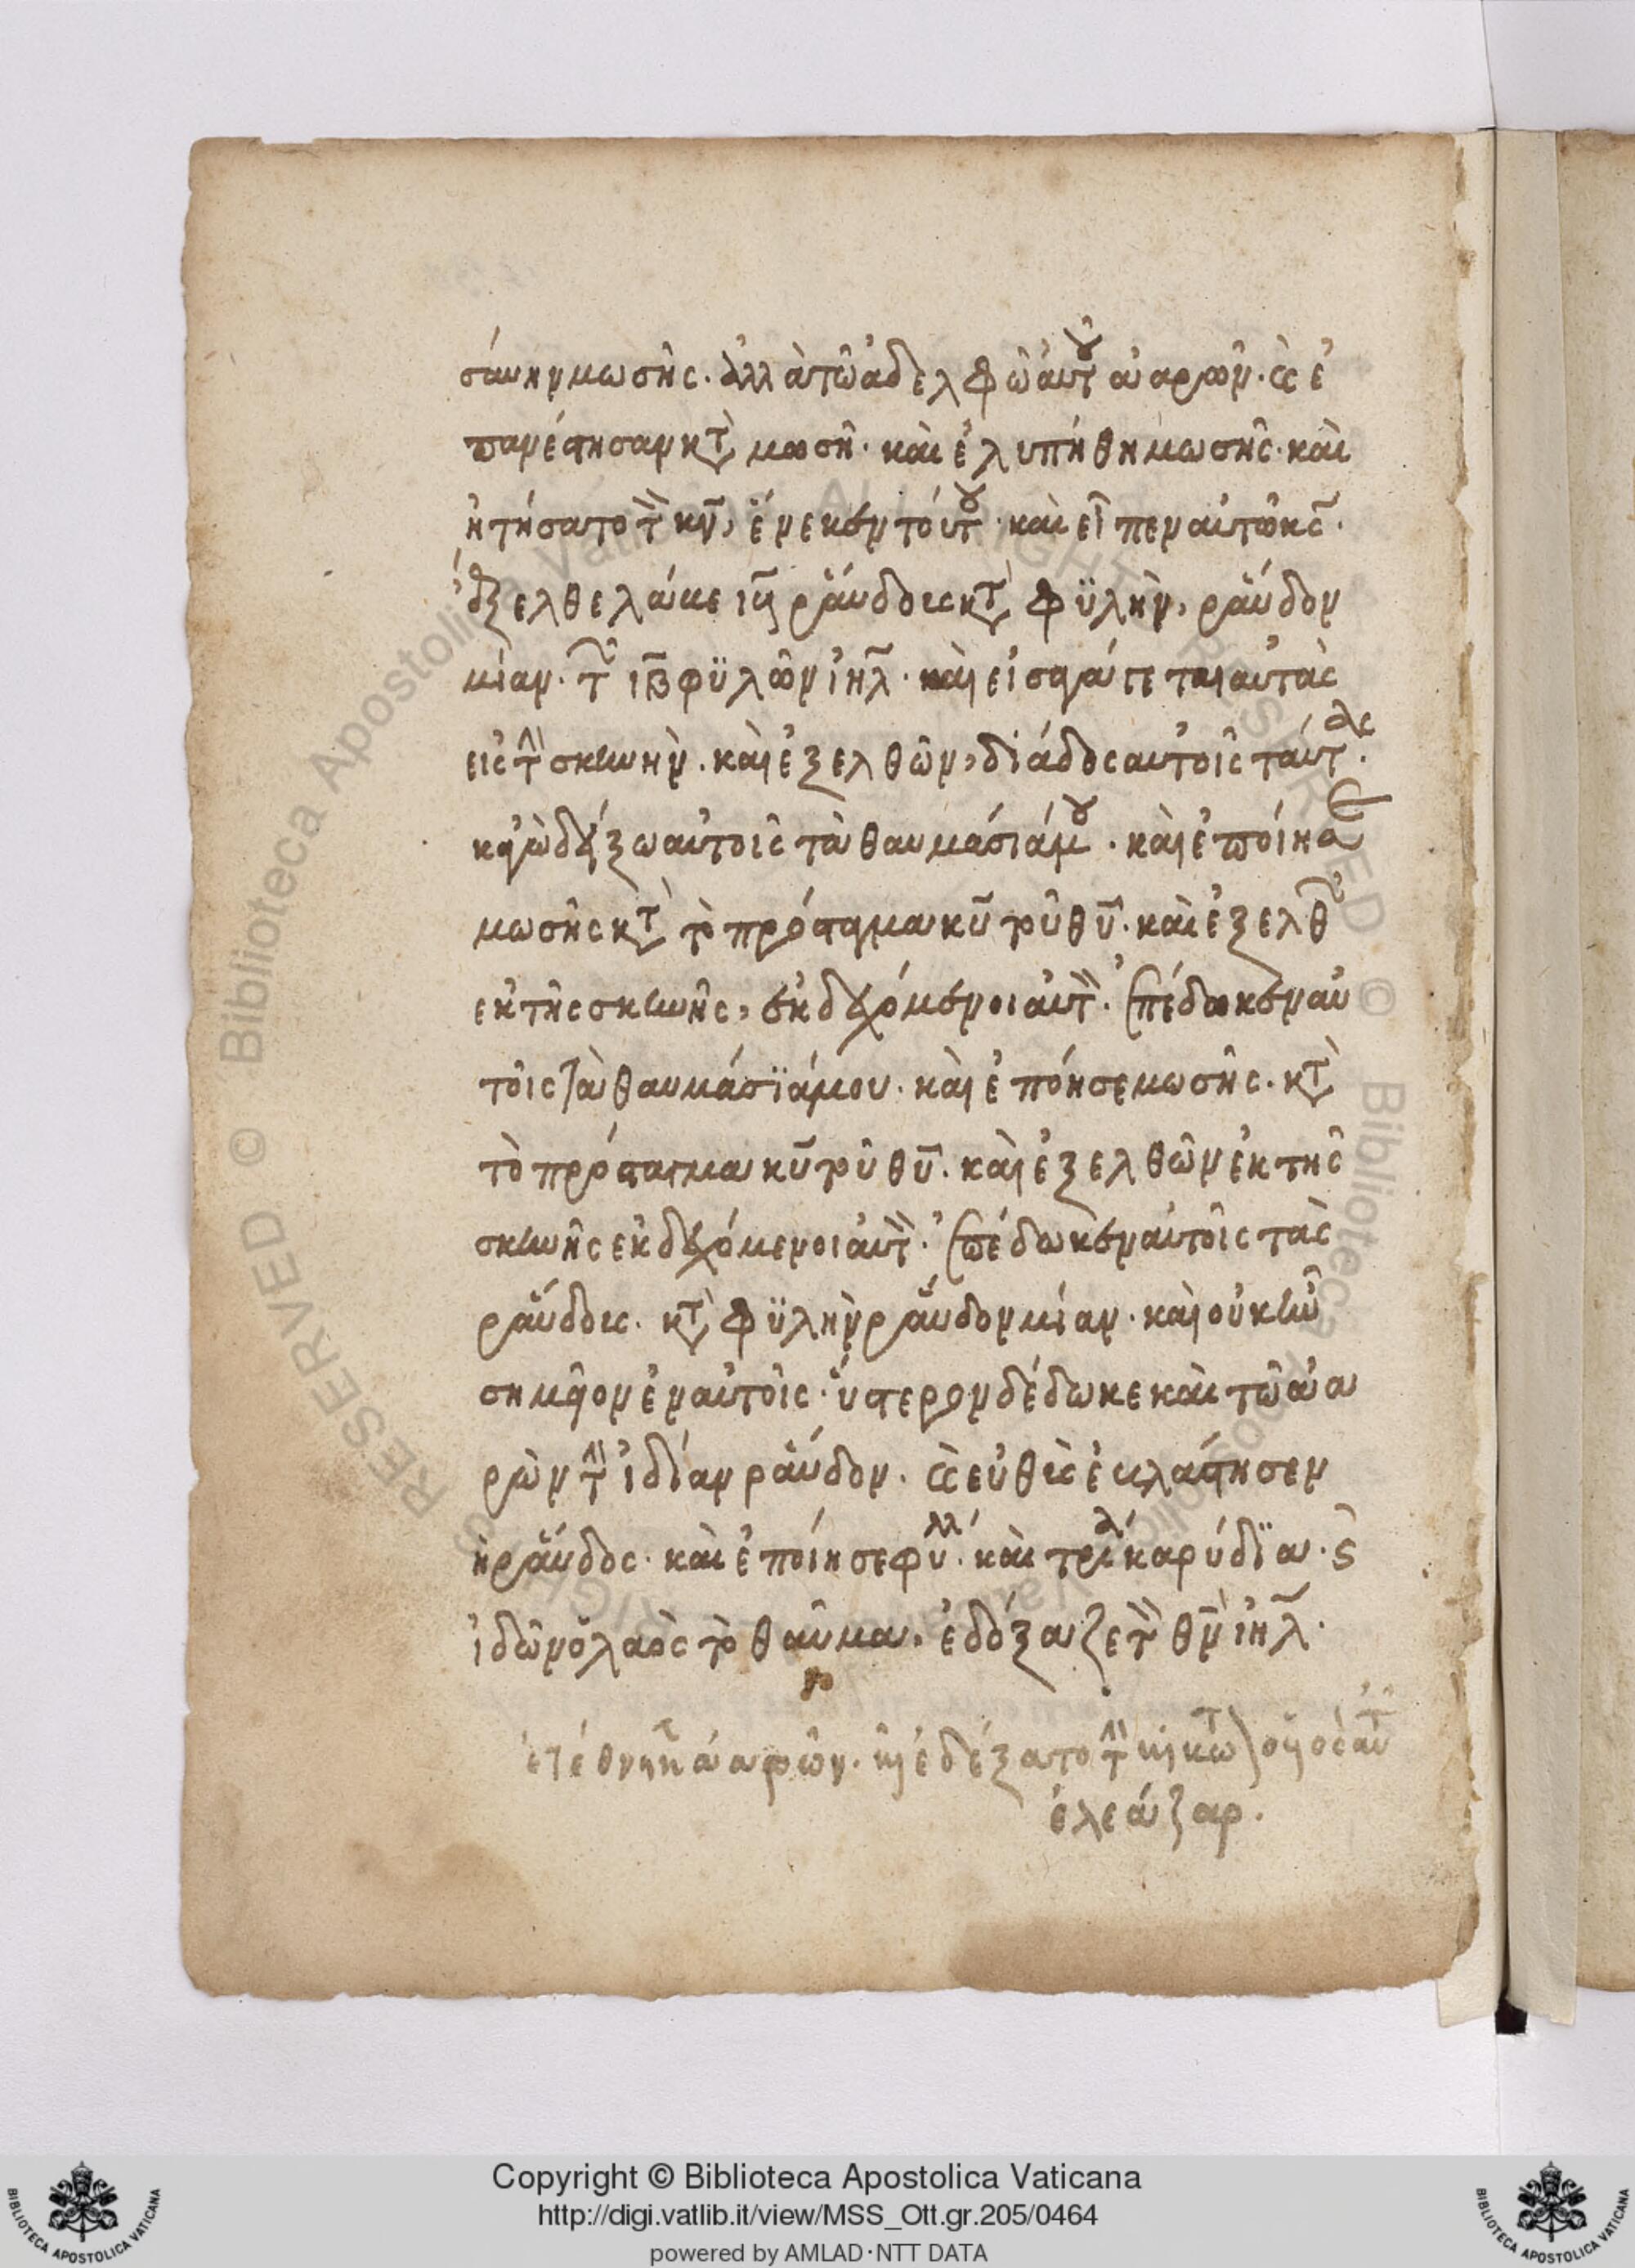 σύνην μωσῆς. ἀλλὰ τῶ ἀδελφῶ αὐτοῦ ἀαρῶν. καὶ ἐ
πανέστησαν κτ μωσῆ. καὶ ἐλυπήθη μωσῆς. καὶ
ἠτήσατο τ κν, ἕνεκεν τούτου. καὶ εἶπεν αὐτῶ κς.
ἔξελθε λάβε ιβ ράβδους κτ φϋλὴν, ράβδον
μίαν. τ ιβ φϋλῶν ιηλ. καὶ εἰσ αὐτὰς
εἰς τ σκινὴν. καὶ ἐξελθῶν, διάδος αὐτοῖς ταύτας.
κἀγὼ δείξω αὐτοῖς τὰ θαυμάσιά μου. καὶ ἐποίησε
μωσῆς κτ τὸ πρόσταγμα κυ τοῦ θυ. καὶ ἐξελθ
ἐκ τῆς σκινῆς, ἐκδεχόμενοι αὐτ. ἐπέδωκεν αὐ
τοῖς τὰ θαυμάσϊά μου. καὶ ἐπόησε μωσῆς. κτ
τὸ πρόσταγμα κυ τοῦ θυ. καὶ ἐξελθῶν ἐκ τῆς
σκινῆς ἐκδεχόμενοι αὐτ. ἐπέδωκεν αὐτοῖς τὰς
ράβδους. κτ φϋλὴν ράβδον μίαν. καὶ οὐκ ἰῶ
σημεῖον ἐν αὐτοῖς. ὕστερον δέδωκε καὶ τῶ ἀα
ρὼν τ ἰδίαν ράβδον. καὶ εὐθὺς ἐβλάστησεν
ἡ ράβδος. καὶ ἐποίησε φύλλα. καὶ τρία καρύδϊα. ς
ἰδῶν ὁ λαὸς τὸ θαῦμα, ἐδόξαζε τ θν ιηλ.
ἐτέθνηκ ἀαρῶν. καὶ ἐδέξατο τ κιβωτ ὁ υἱὸς αὐτ
ἐλεάζαρ.
Copyright © Biblioteca Apostolica Vaticana
http://digi.vatlib.it/view/MSS_Ott.gr.205/0464
powered by AMLAD · NTT DATA